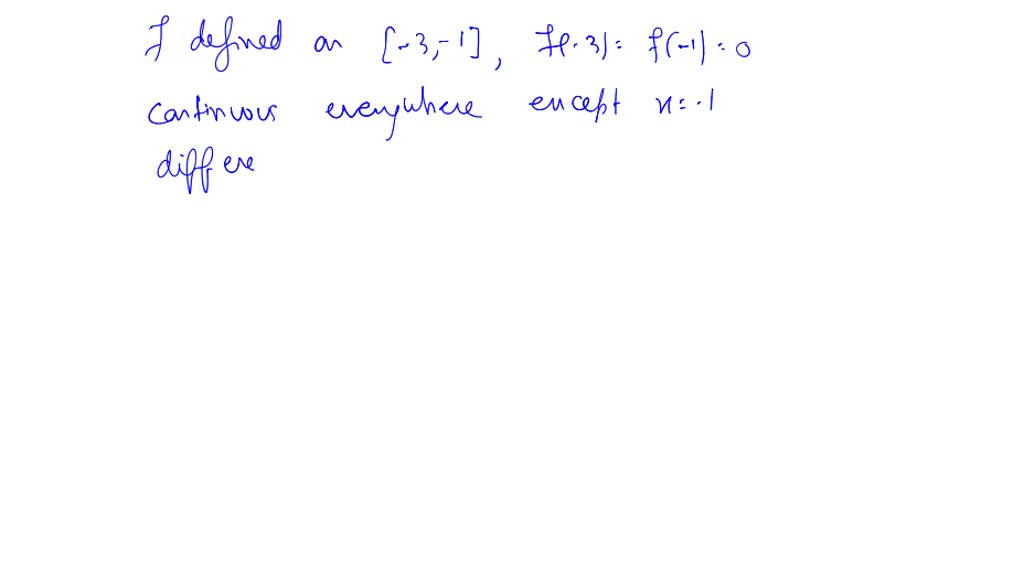 f defined on [-3,-1], f(-3) = f(-1) = 0
continuous everywhere except x = -1
differe